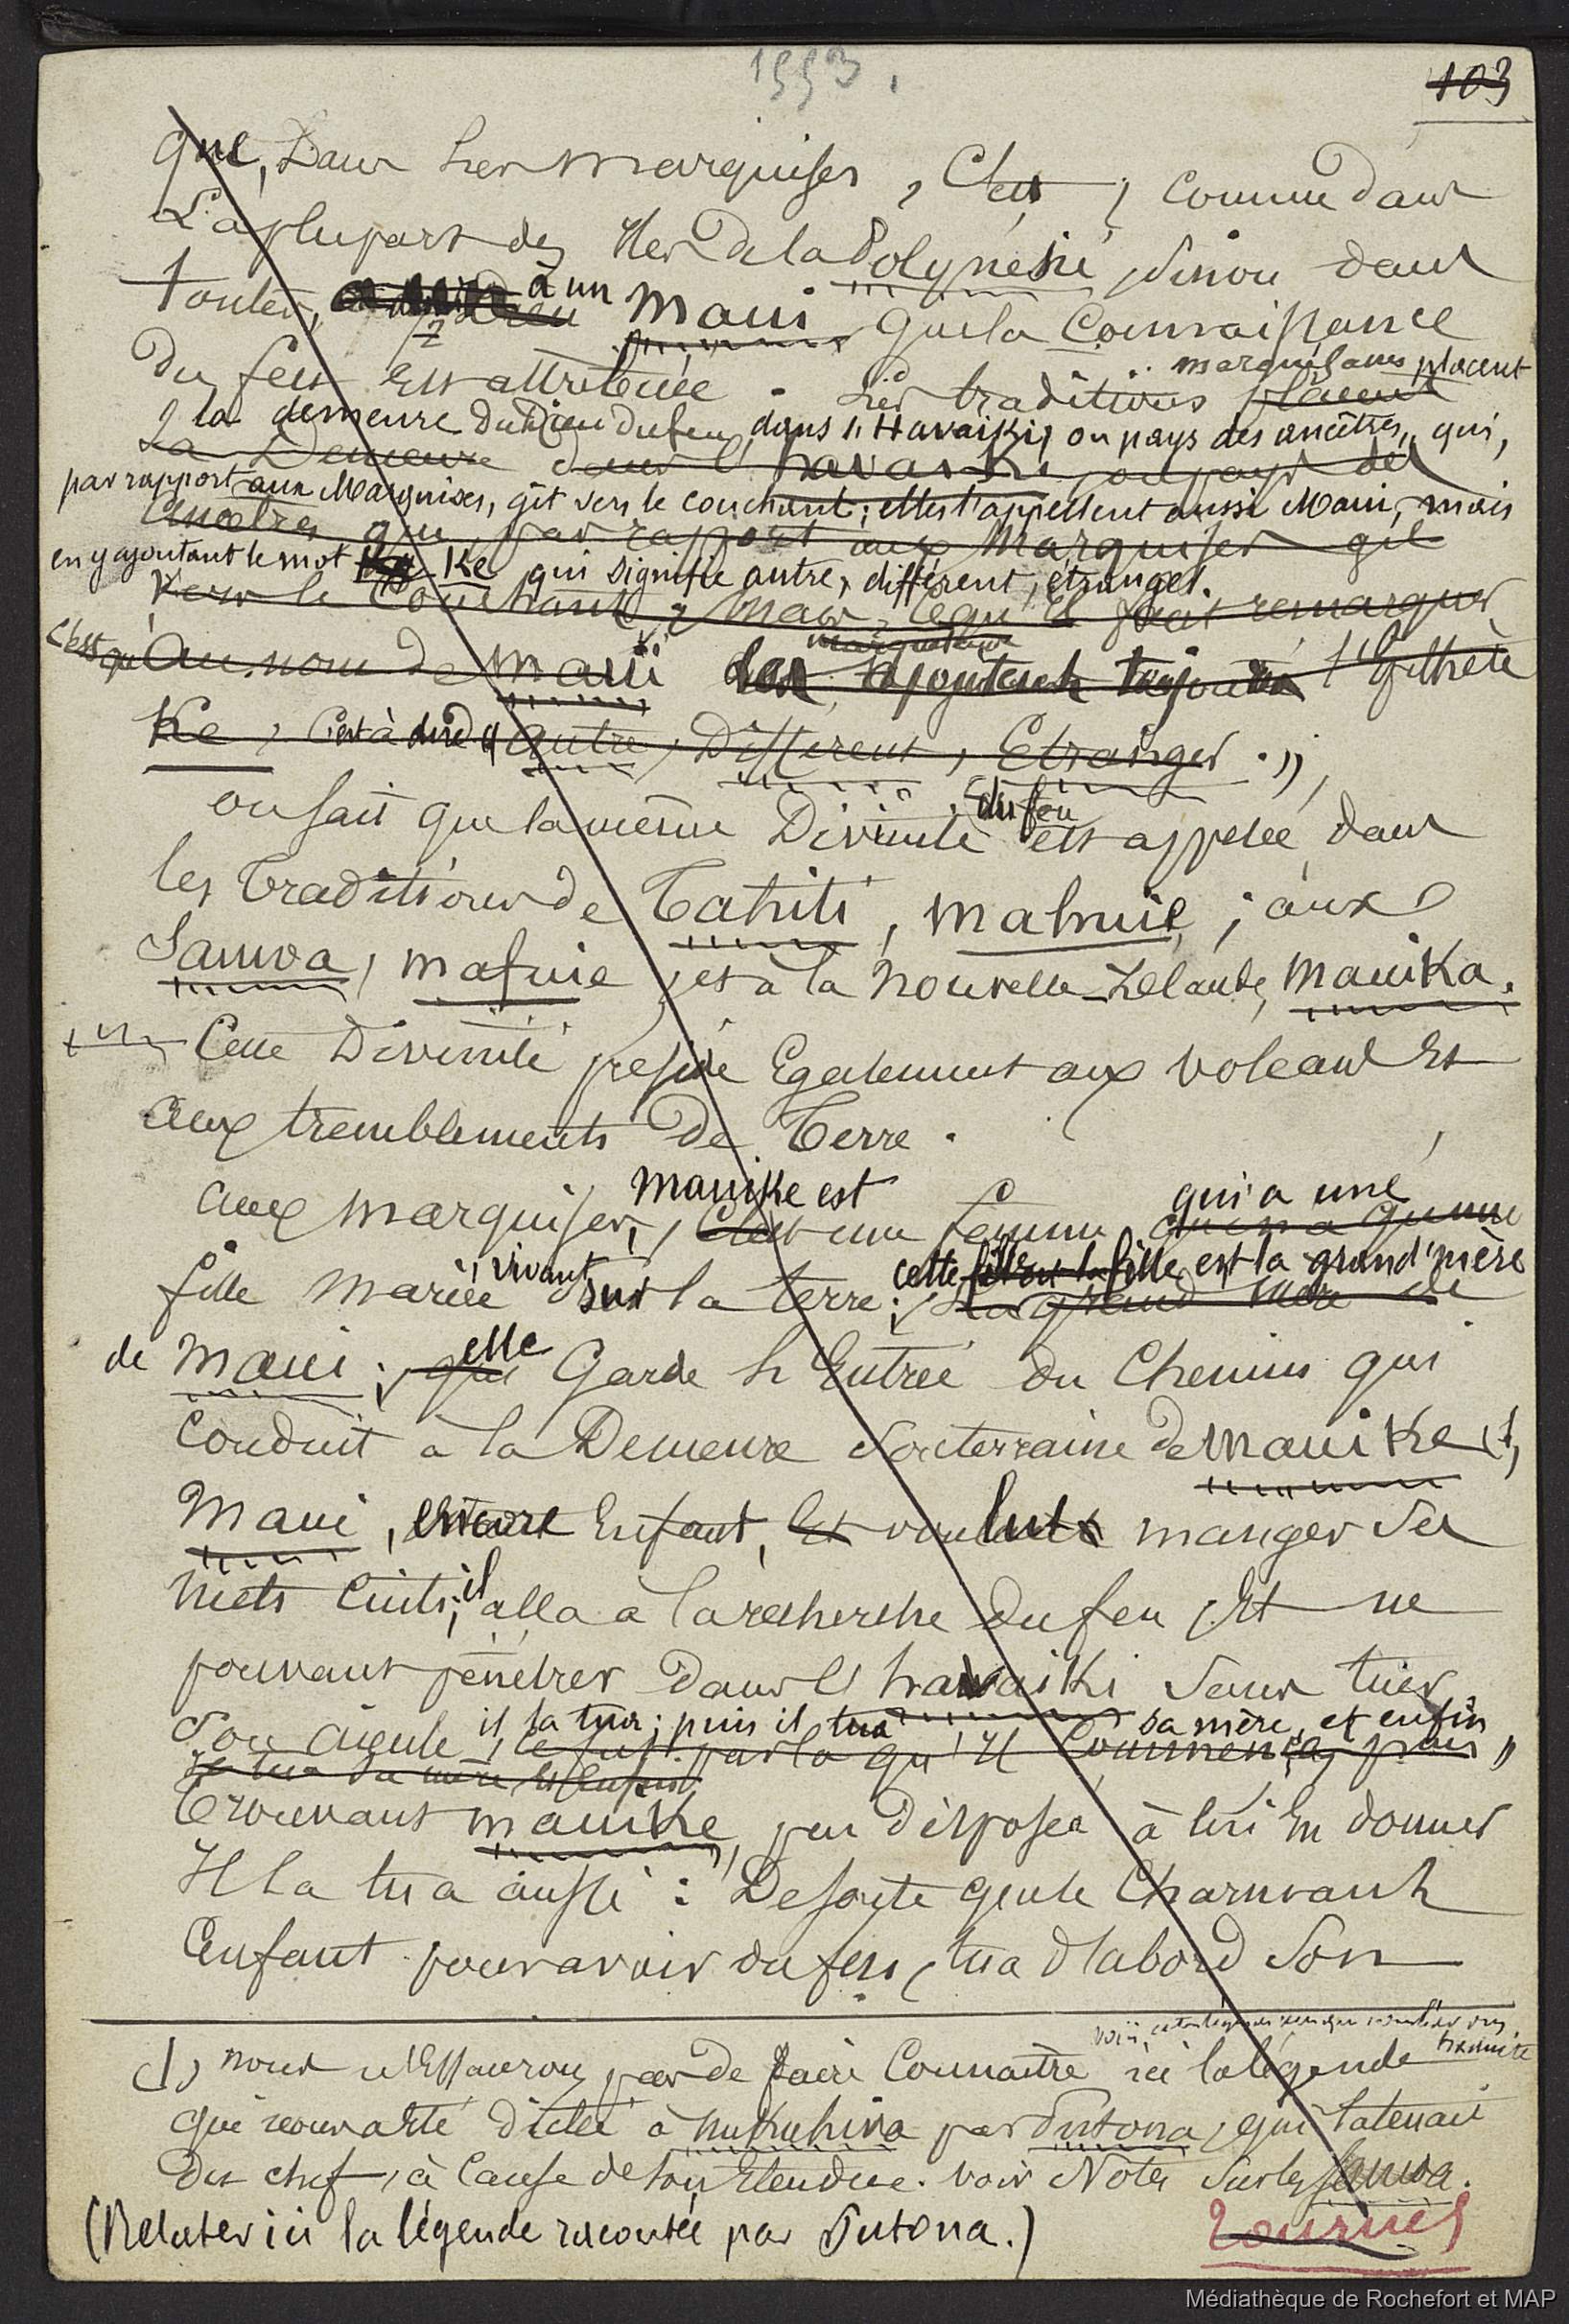 1553.
103
que, Dans les marquises, c'est, comme dans
La plupart des Iles De la Polynésie, sinon dans
toutes, à un Maui que la Connaissance
Du feu Est attribuée. Les traditions marquisanes placent placent
la demeure du Dieu du feu dans l'Havaiki, ou pays des ancêtres, qui,
La Demeure dans l'havaiki, ou pays des
par rapport aux Marquises, gît vers le couchant; elles l'appellent aussi Maui, mais
Ancêtres qui par rapport aux Marquises gît
en y ajoutant le mot Ke qui signifie autre, différent, étranger.
Vers le Couchant; mais, ce qu'il faut remarquer
c'est qu'Au nom de Maui les marquisans ajoutent toujours l'Epithète
Ke, C'est à dire "autre, Différent, Etranger."
on sait que la même Divinité du feu est appelée dans
les Traditions de Tahiti, mahuie; aux
Samoa, mafuie, et à la Nouvelle-Zélande, mauika.
Cette Divinité préside Egalement aux Volcans Et
aux tremblements De Terre.
aux Marquises, mauike est C'est une femme qui a une qui n'a qu'une
fille mariée vivant sur la terre; cette fille est la grand'mère
La grand mère de
de Maui; elle qui Garde l'Entrée du Chemin qui
Conduit à la Demeure souterraine de mauike (1)
Maui, encore Enfant, Et voulut manger des
mets cuits; il alla à la recherche du feu Et ne
pouvant pénétrer dans l'havaiki sans tuer
son aïeule, il la tua; puis il tua sa mère, et enfin
ce fut par là qu'il Commença, puis
il tua sa mère Et Enfin
trouvant mauike, peu disposée à lui En donner
Il la tua aussi: De sorte que le Charmant
Enfant pour avoir du feu, tua D'abord son
(1) nous n'Essaierons pas de faire Connaître ici la légende
qui nous a été Dictée à nukuhiva par Putona, qui la tenait
du chef, à Cause de son Etendue. voir Notes sur les Samoa.
(Relater ici la légende racontée par Putona.)
Tournez
Médiathèque de Rochefort et MAP